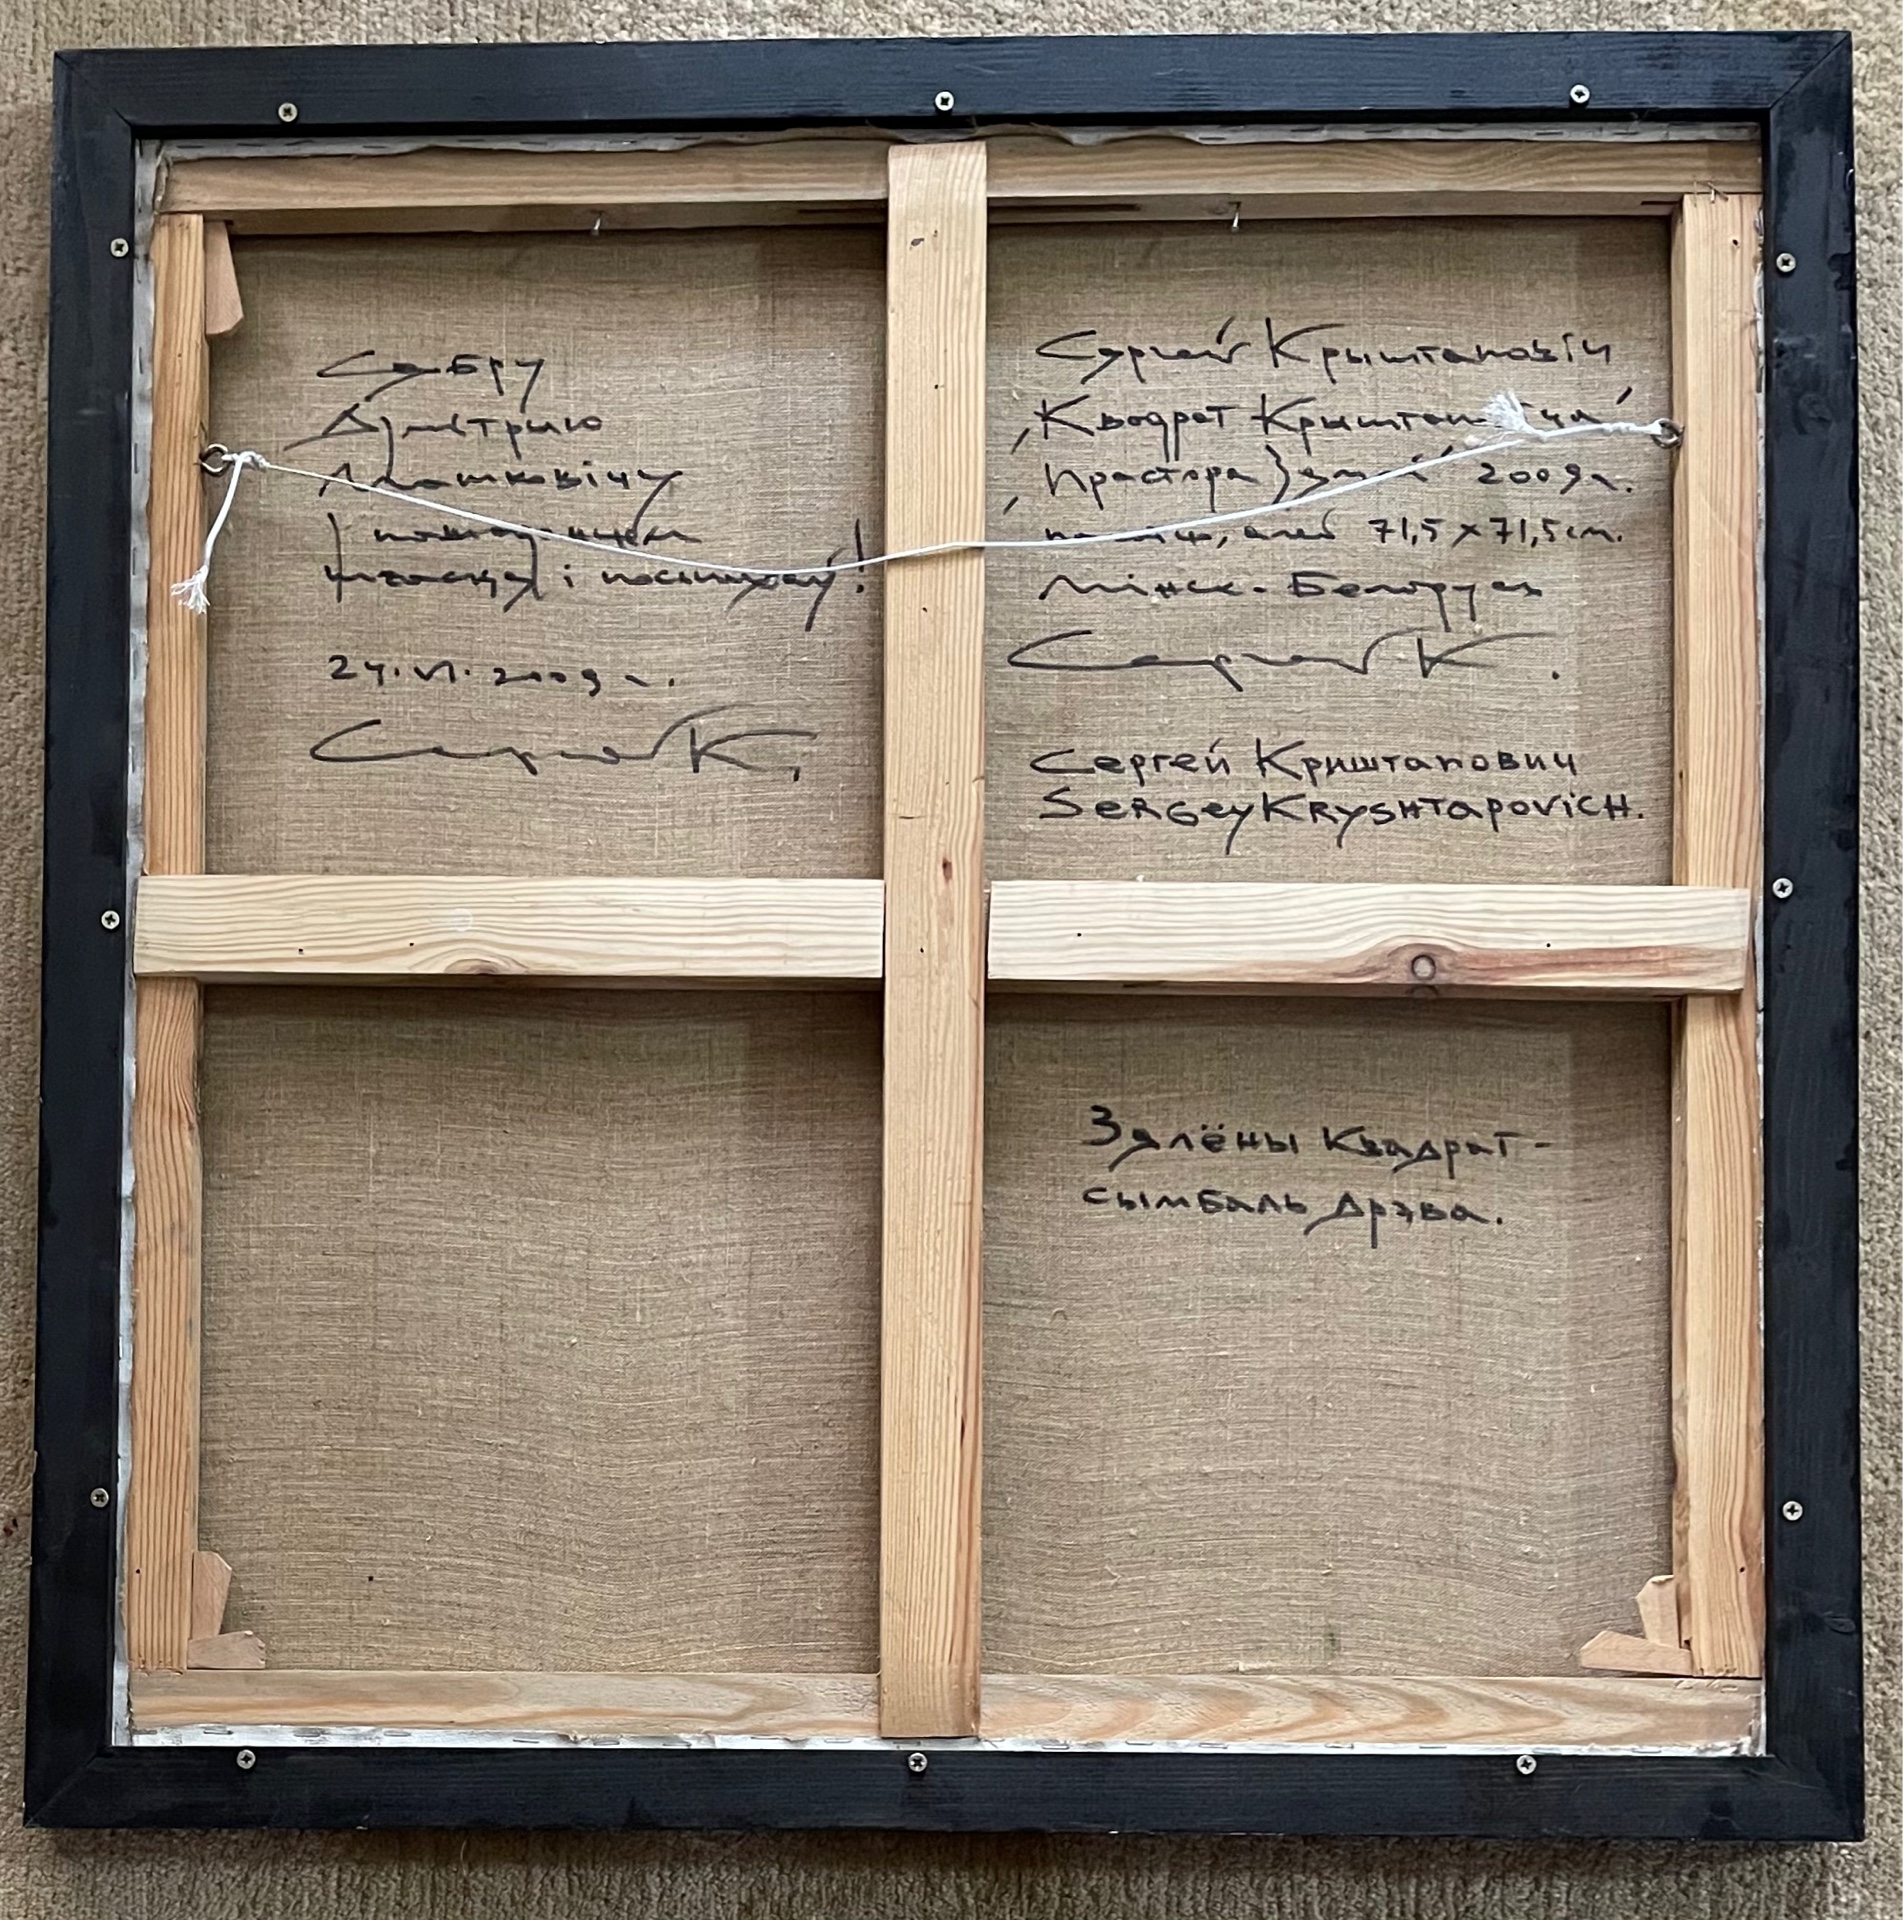 Сябру
Дзмітрыю
Машковічу
з пажаданнем
шчасця і поспехаў!
24.VI.2009 г.
Сяргей К.
Сяргей Крыштаповіч
„Квадрат Крыштаповіча“
„Прастора
2009 г.
алей 71,5 х 71,5 см.
Мінск - Беларусь
Сяргей К.
Сергей Криштапович
Sergey Kryshtapovich.
Зялёны Квадрат -
сымбаль Дрэва.